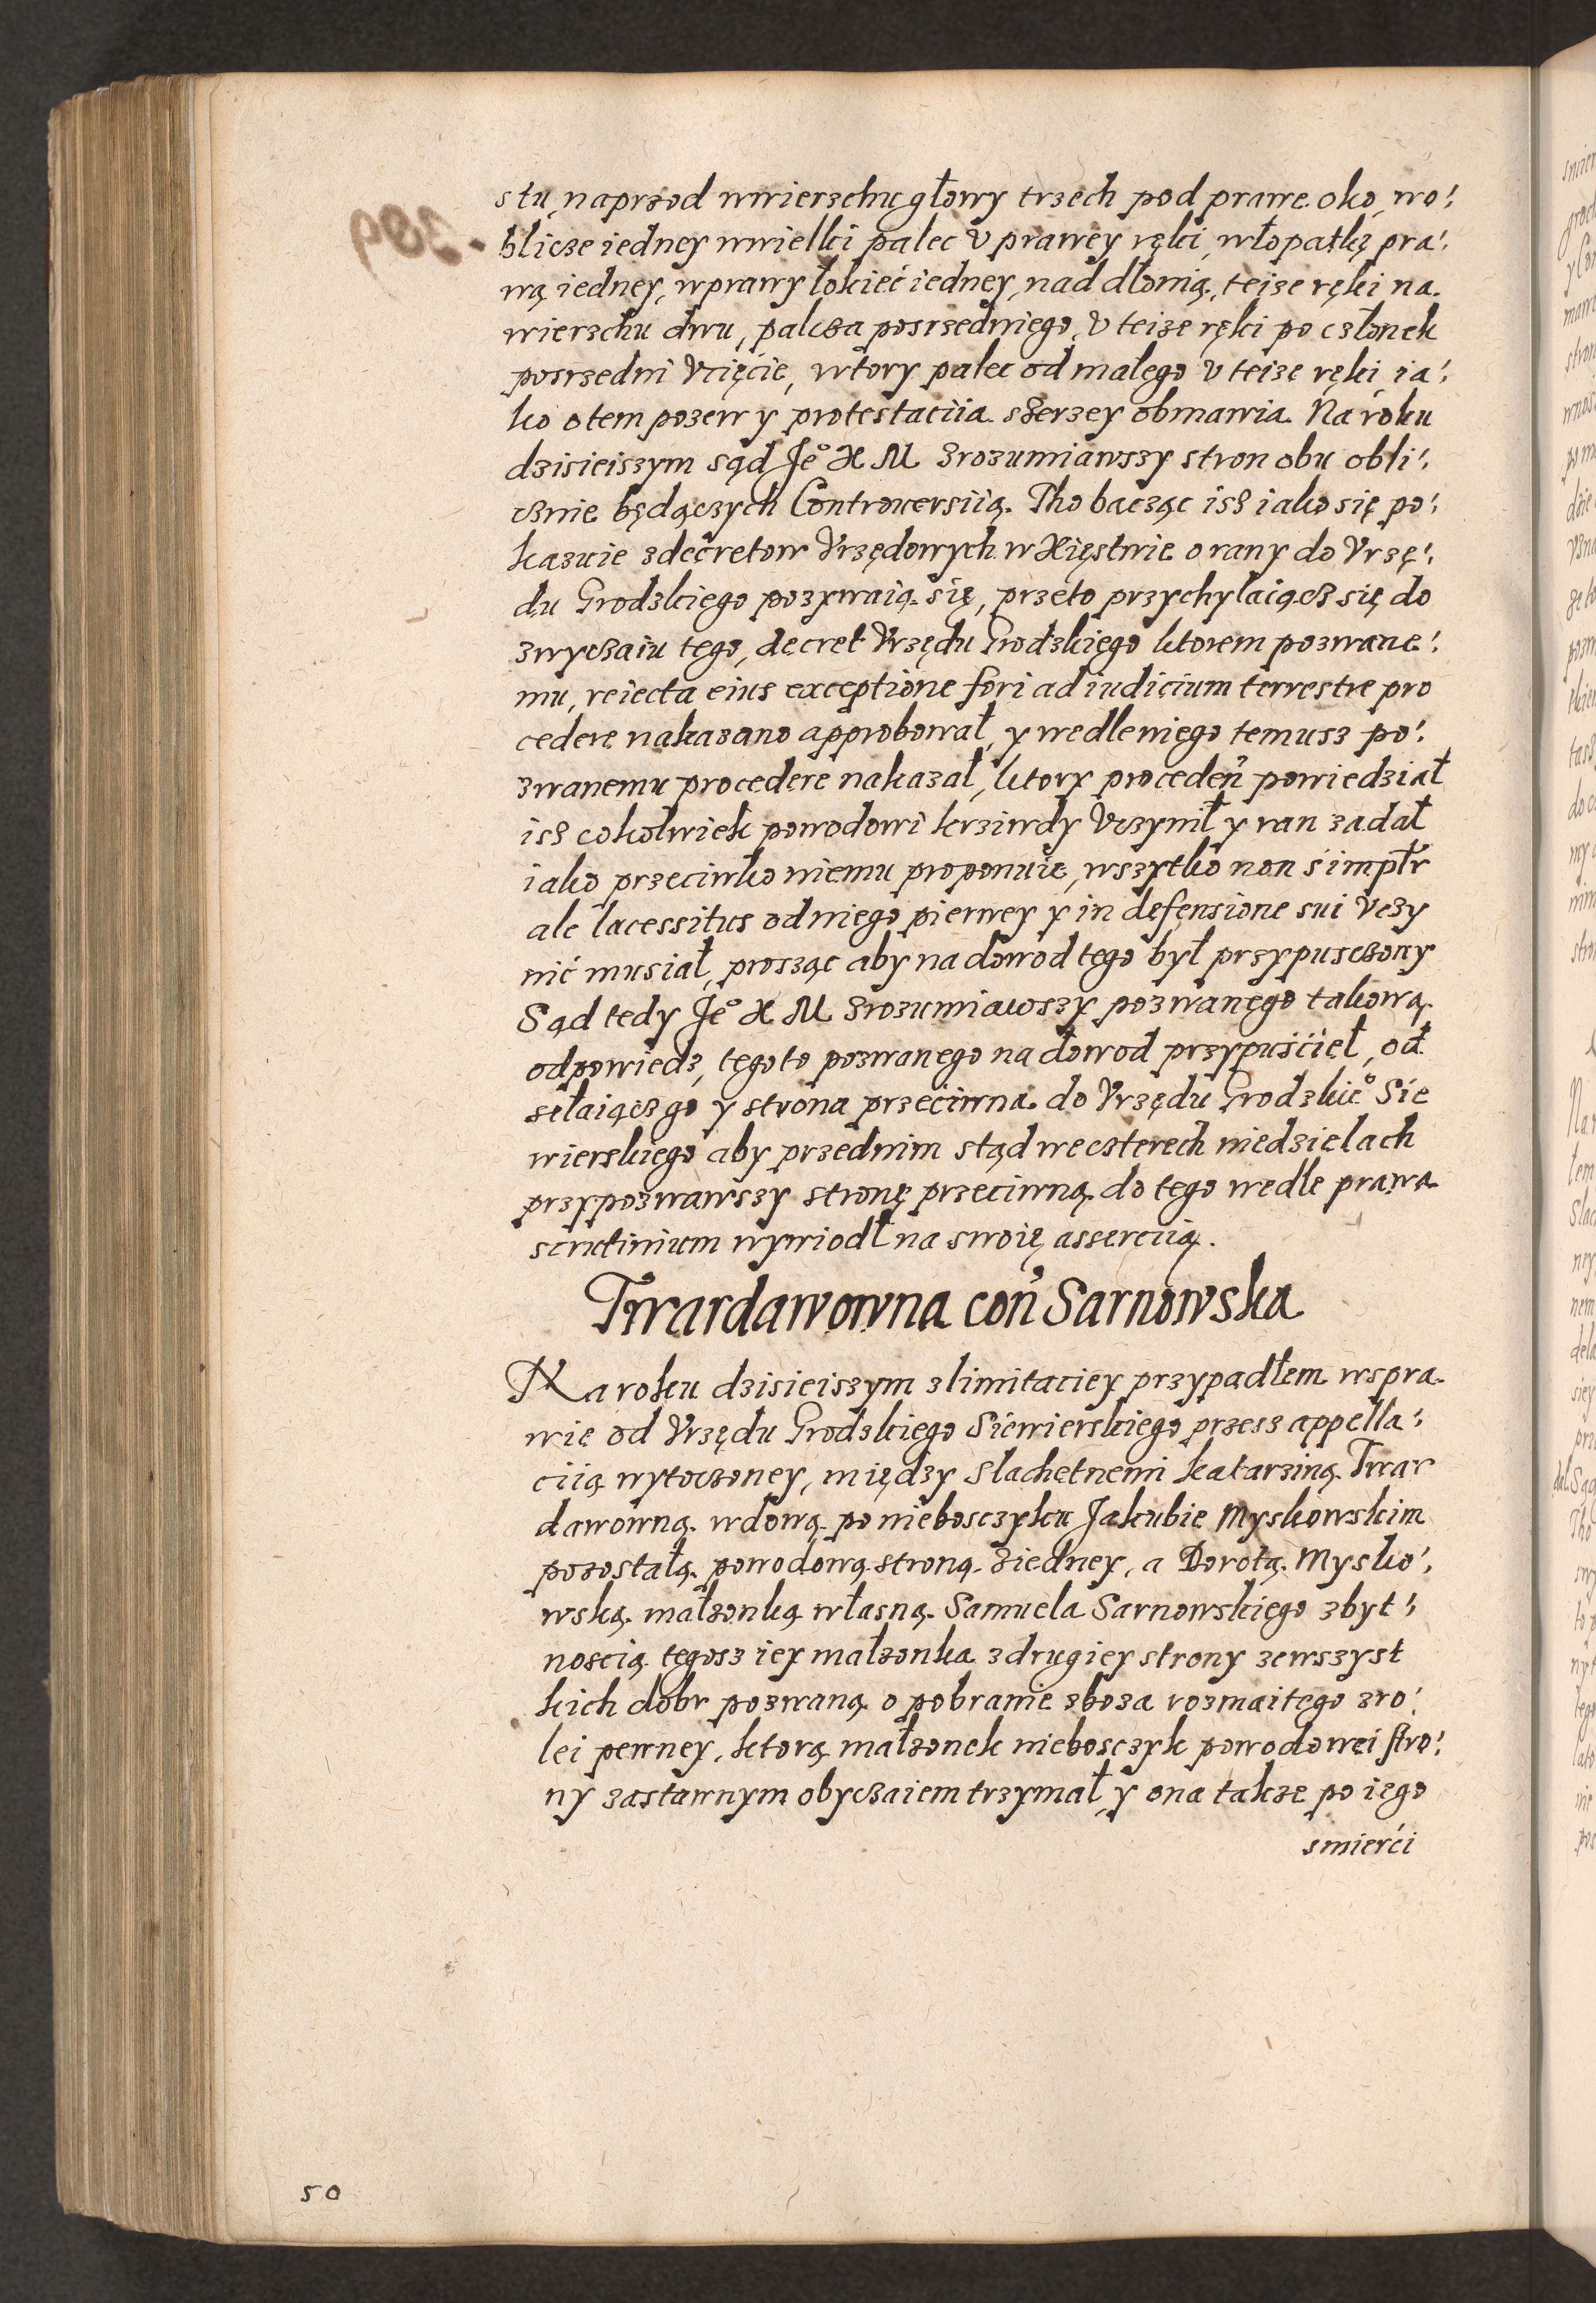 stu, naprzod wwierzchu głowy trzech pod prawe oko, wo⸗
blicze iedney wwielki palec v prawey ręki, włopatkę pra⸗
wą iedney, wprawy łokieć iedney, nad dłonią, teize ręki na
wierzchu dwu, palcza posrzedniego, v teize ręki po członek
posrzedni vcięcie, wtory palec od małego v teize ręki, ia⸗
ko o tem pozew y protestaciia szerzey obmawia. Na roku
dzisieiszym sąd Je° X M zrozumiawszy stron obu obli⸗
cznie będączych Controwersiią. Tho bacząc isz iako się po⸗
kazuie zdecretow Vrzędowych w Xięstwie o rany do Vrzę⸗
du Grodzkiego pozywaią się, przeto przychylaiącz się do
zwyczaiu tego, decret Vrzędu Grodzkiego ktorem pozwane⸗
mu, reiecta eius exceptione fori ad iudicium terrestre pro
cedere nakazano approbował, y wedle niego temusz po⸗
zwanemu procedere nakazał, ktory proceden̄ powiedział
isz cokolwiek powodowi krziwdy vczynił y ran zadał
iako przeciwko niemu proponuie, wszytko non simplr
ale lacessitus od niego pierwey y in defensione sui vczy
nić musiał, prosząc aby na dowod tego był przypusczony
Sąd tedy Je° X M zrozumiawszy pozwanego takową
odpowiedz, tego to pozwanego na dowod przypuściel, od
sełaiącz go y strona przeciwna do Vrzędu Grodzkie° Sie
wierskiego aby przednim stąd we czterech niedzielach
przypozwawszy stronę przeciwną do tego wedle prawa
scrutinium wywiodł na swoię asserciią.
Twardawowna con̄ Sarnowska
Na roku dzisieiszym z limitaciey przypadłem wspra
wie od Vrzędu Grodzkiego Siewierskiego przesz appella⸗
ciią wytoczoney, między slachetnemi Katarziną Twar
dawowną wdową po niebosczyku Jakubie Myskowskim
pozostałą powodową stroną ziedney, a Dorotą Mysko⸗
wską małzonką własną Samuela Sarnowskiego zbyt⸗
noscią tegosz iey małzonka z drugiey strony zewszyst
kich dobr pozwaną o pobranie zboza rozmaitego zro⸗
lei pewney, ktorą małzonek niebosczyk powodowei stro⸗
ny zastawnym obyczaiem trzymał, y ona takze po iego
smierći
50